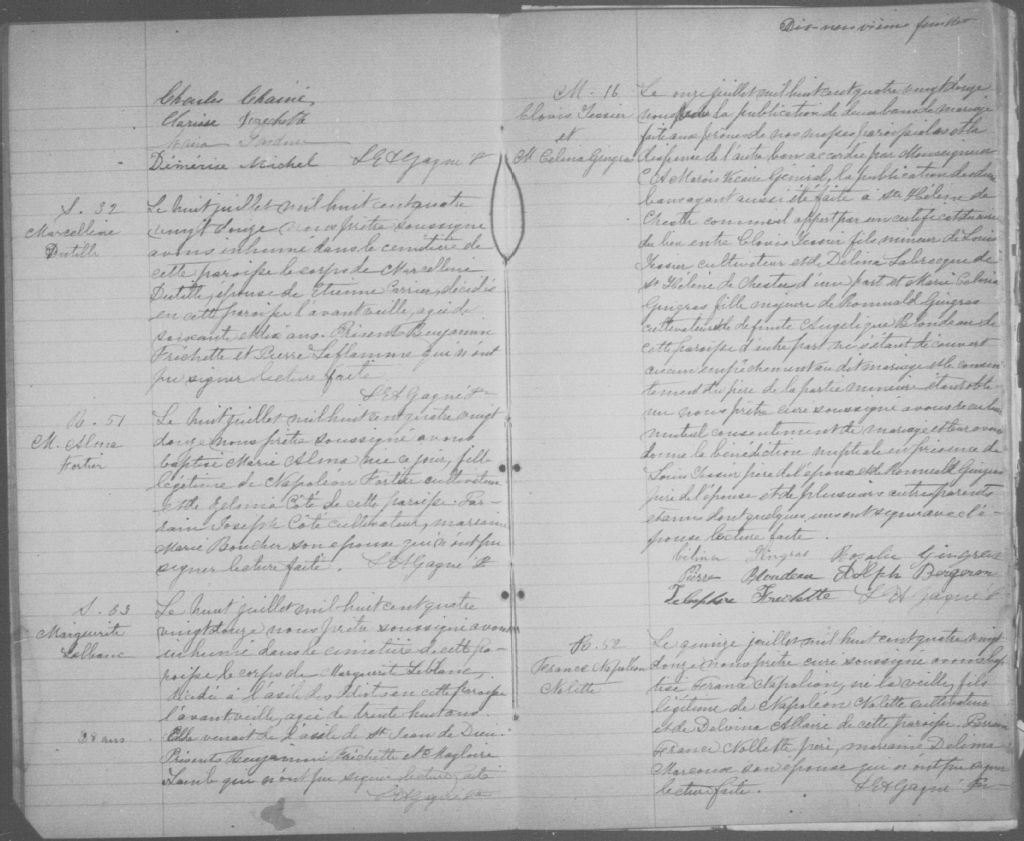 Charles Chainé,
Clarisse Frechette
Maria
Démérise Michel L E A Gagné Ptr
S. 32
Marcelline
Dutille
Le huit juillet mil huit cent quatre
vingt douze nous prêtre soussigné
avons inhumé dans le cimetière de
cette paroisse le corps de Marcelline
Dutille, épouse de Etienne Carrier, décédée
en cette paroisse l'avant veille, agée de
soixante et dix ans. Présents Benjamin
Fréchette et Pierre Laflamme qui n'ont
pu signer lecture faite.
L E A Gagné Ptr
B. 51
M. Alma
Fortier
Le huit juillet mil huit cent quatre vingt
douze nous prêtre soussigné avons
baptisé Marie Alma née ce jour, fille
légitime de Napoléon Fortier cultivateur
et de Côté de cette paroisse. Par-
rain Joseph Côté cultivateur, marraine
Marie Boucher son épouse qui n'ont pu
signer lecture faite. L E A Gagné Ptr
S. 33
Marguerite
Leblanc
28 ans
Le huit juillet mil huit cent quatre
vingt douze nous prêtre soussigné avons
inhumé dans le cimetière de cette pa-
roisse le corps de Marguerite Leblanc,
décédée à l'asile des Idiots en cette paroisse
l'avant veille, agée de trente huit ans.
Elle venait de l'asile de St Jean de Dieu.
Présents Benjamin Fréchette et Magloire
qui n'ont pu signer lecture faite
L E A Gagné Ptr
Dix-neuvième feuillet
M. 16
Clovis Tessier
et
M. Celina Gingras
Le onze juillet mil huit cent quatre vingt douze
vu la publication de deux bans de mariage
faite aux prônes de nos messes paroissiales et la
dispense de l'autre ban accordée par Monseigneur
C A Marois Vicaire Général, la publication de deux
bans ayant aussi été faite à Ste Hélène de
Chester comme il appert par un certificat du curé
du lieu entre Clovis Tessier fils mineur de Louis
Tessier cultivateur et de Délina Labrecque de
Ste Hélène de Chester d'une part et Marie Celina
Gingras fille majeure de Romuald Gingras
cultivateur et de défunte Angelique Blondeau de
cette paroisse d'autre part ne s'étant découvert
aucun empêchement au dit mariage et le consen-
tement du père de la partie mineure étant obte-
nu nous prêtre curé soussigné avons reçu leur
mutuel consentement de mariage et leur avons
donné la bénédiction nuptiale en présence de
Louis Tessier père de l'époux et de Romuald Gingras
père de l'épouse et de plusieurs autres parents
et amis dont quelques uns ont signé avec l'é-
pouse lecture faite.
Célina Gingras Rosalie Gingras
Pierre Blondeau Adolph Bergeron
Telesphore Frechette L E A Gagné Ptr
B. 52
France Napoléon
Nolette
Le quinze juillet mil huit cent quatre vingt
douze nous prêtre curé soussigné avons bap-
tisé France Napoléon, né la veille, fils
légitime de Napoléon Nolette cultivateur
et de Delvina Allaire de cette paroisse. Parrain
France Nollette père, marraine Délima
Marcoux son épouse qui n'ont pu signer
lecture faite. L E A Gagné Ptr